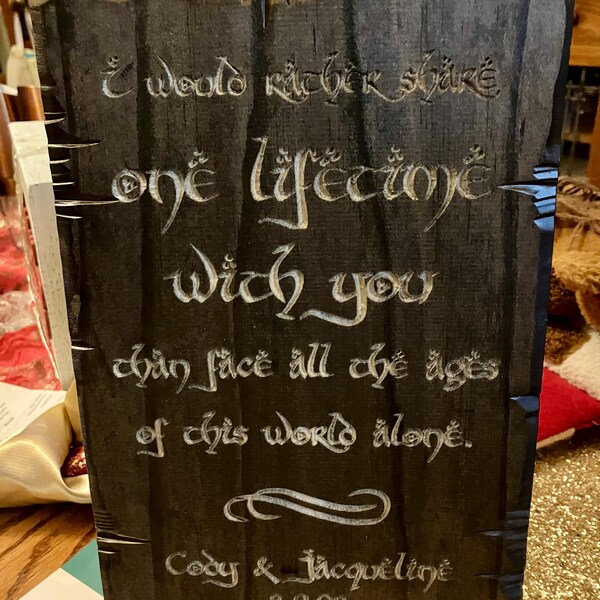 i would rather share
one lifetime
with you
than face all the ages
of this world alone.
Cody & Jacqueline